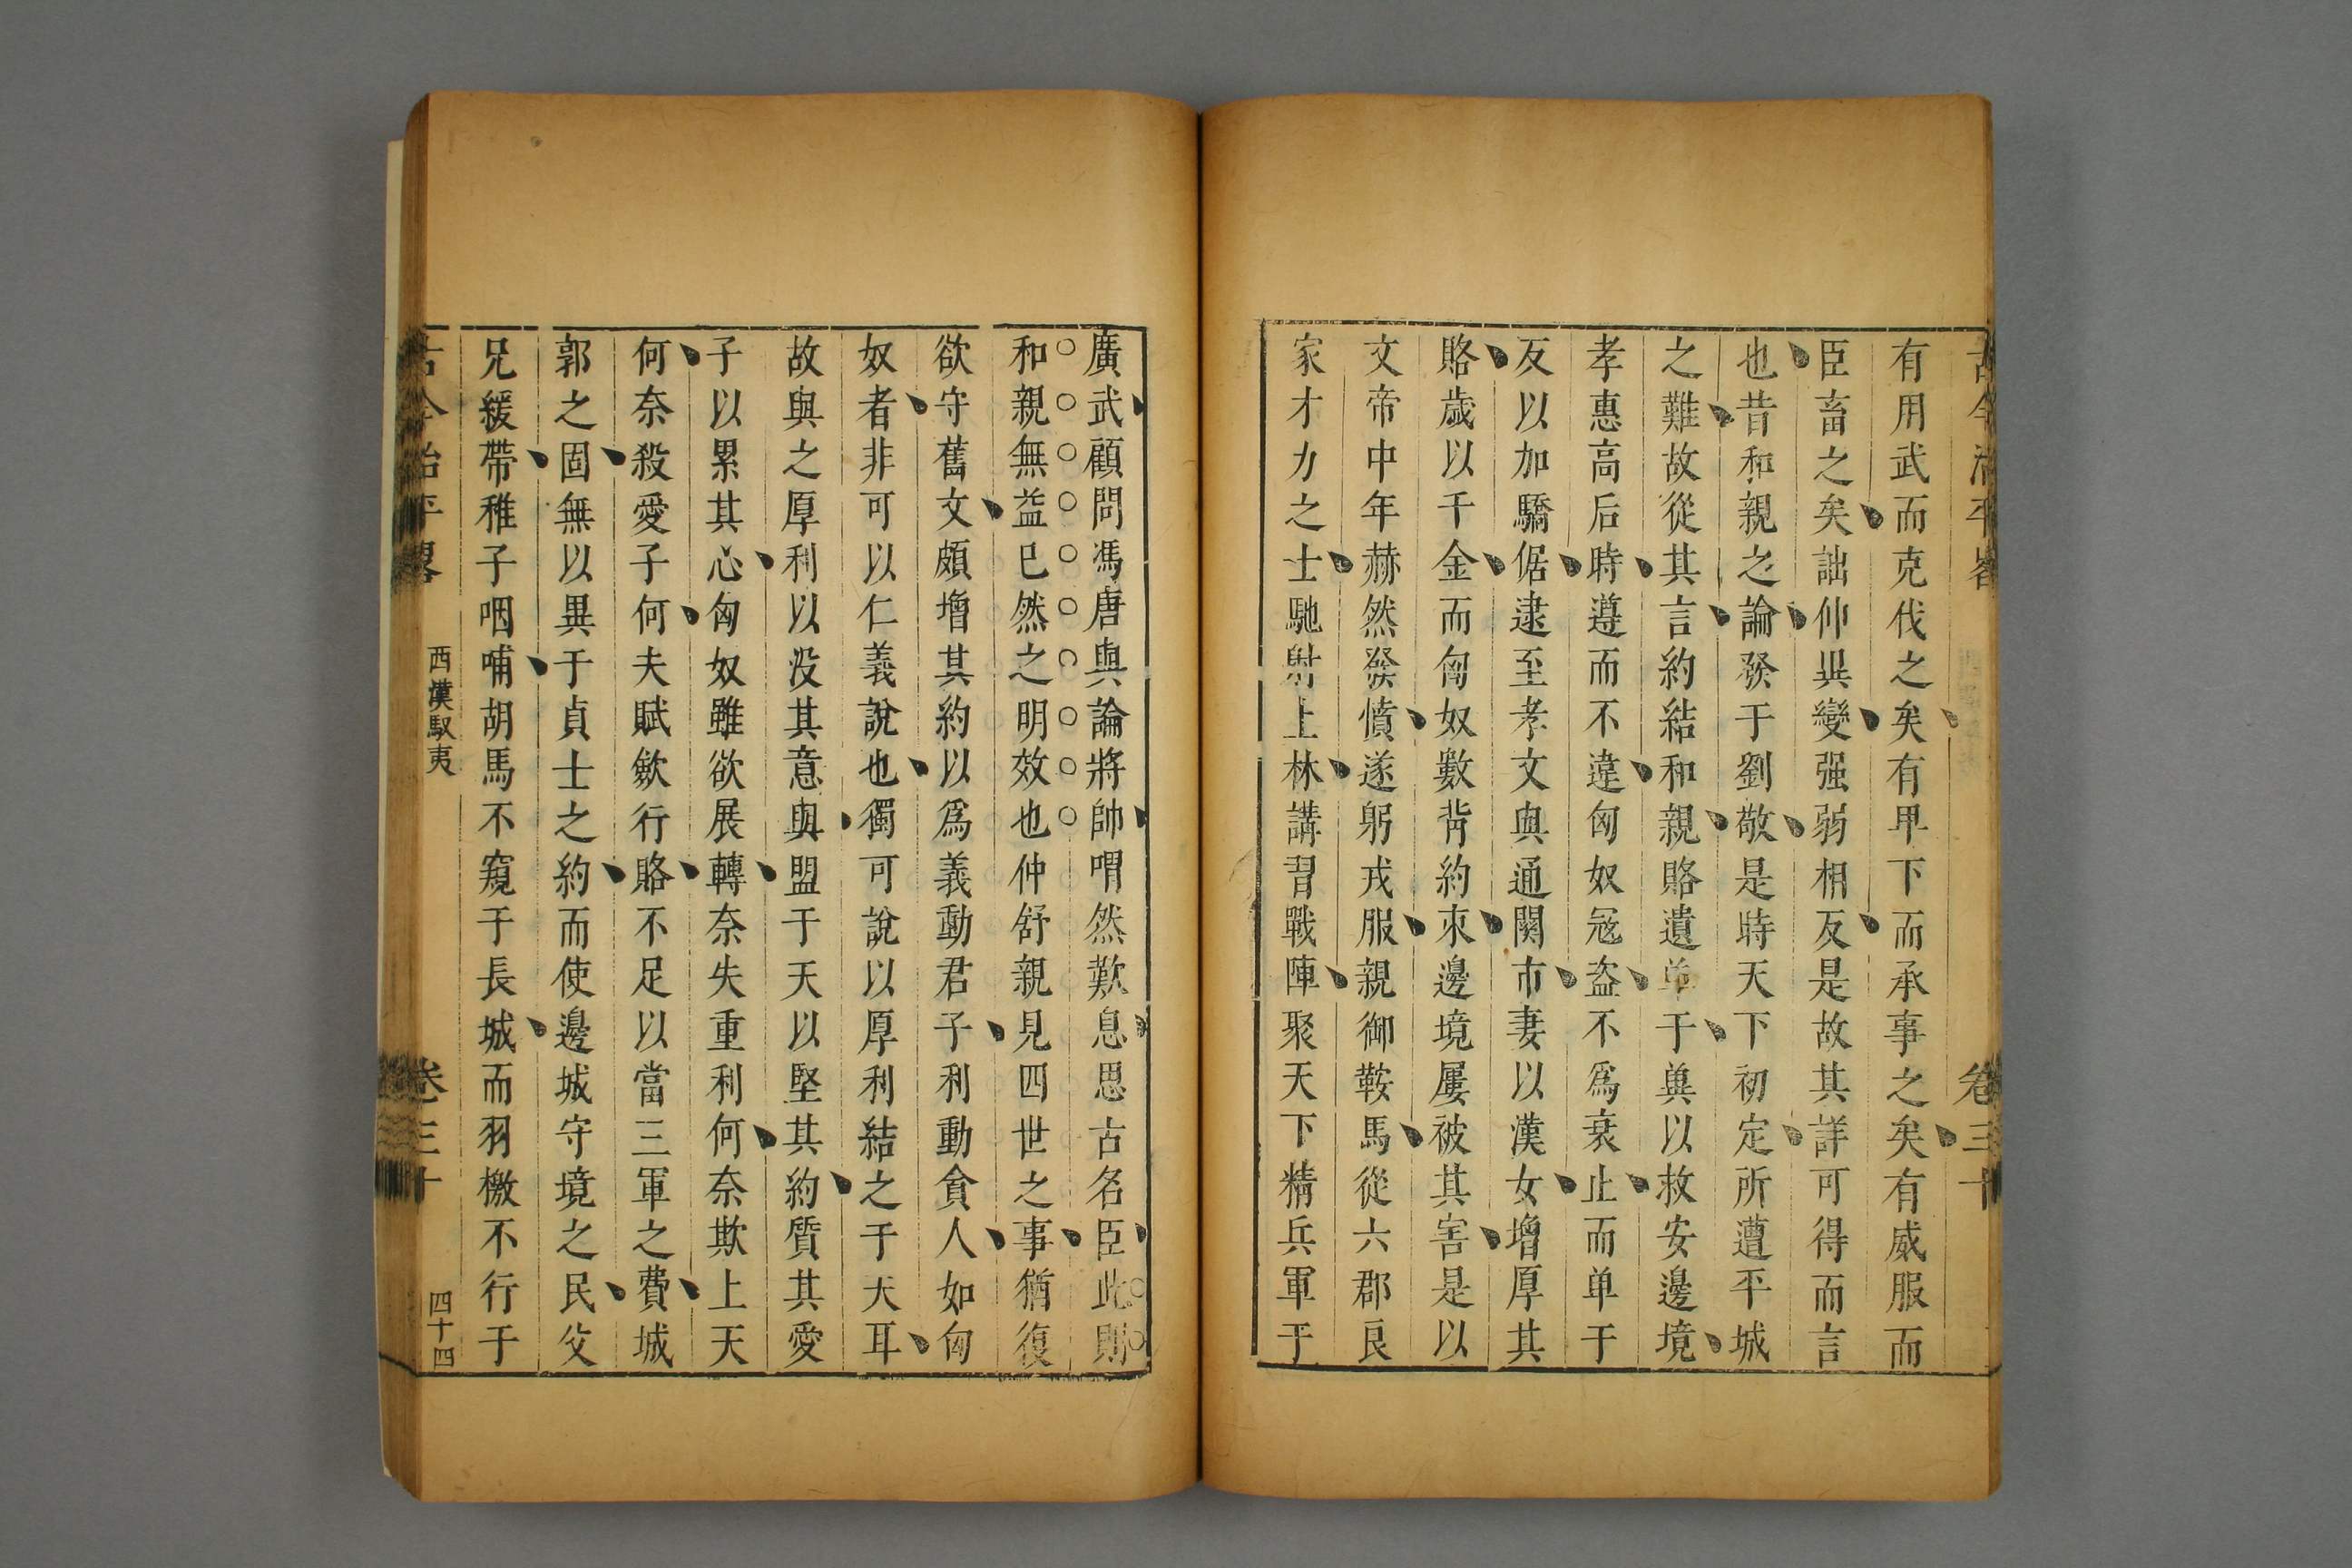 有用武而克伐之矣有甲下而承事之矣有威服而
臣畜之矣詘伸異變强弱相反是故其詳可得而言
也昔和親之論發于劉敬是時天下初定所遭平城
之難故從其言約結和親賂遺单于兾以救安邊境
孝惠高后時遵而不違匈奴冦盗不爲衰止而单于
反以加驕倨逮至孝文與通關市妻以漢女增厚其
賂歲以千金而匈奴數背約束邊境屢被其害是以
文帝中年赫然發憤遂躬戎服親御鞍馬從六郡良
家才力之士馳射上林講習戰陣聚天下精兵軍于
廣武顧問馮唐與論將帥喟然歎息思古名臣此則
和親無益已然之明效也仲舒親見四世之事猶復
欲守舊文頗增其約以爲義動君子利動貪人如匈
奴者非可以仁義說也獨可說以厚利結之于天耳
故與之厚利以没其意與盟于天以堅其約質其愛
子以累其心匈奴雖欲展轉奈失重利何奈欺上天
何奈殺愛子何夫賦歛行賂不足以當三軍之費城
郭之固無以異于貞士之約而使邊城守境之民父
兄緩帶稚子咽哺胡馬不窺于長城而羽檄不行于
古今治平畧
西漢馭夷
卷三十
四十四